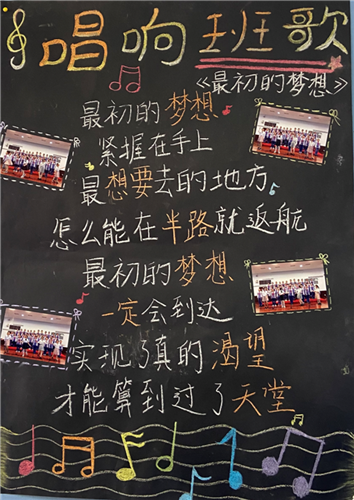 唱响班歌
《最初的梦想》
最初的梦想
紧握在手上
最想要去的地方
怎么能在半路就返航
最初的梦想
一定会到达
实现了真的渴望
才能算到过了天堂